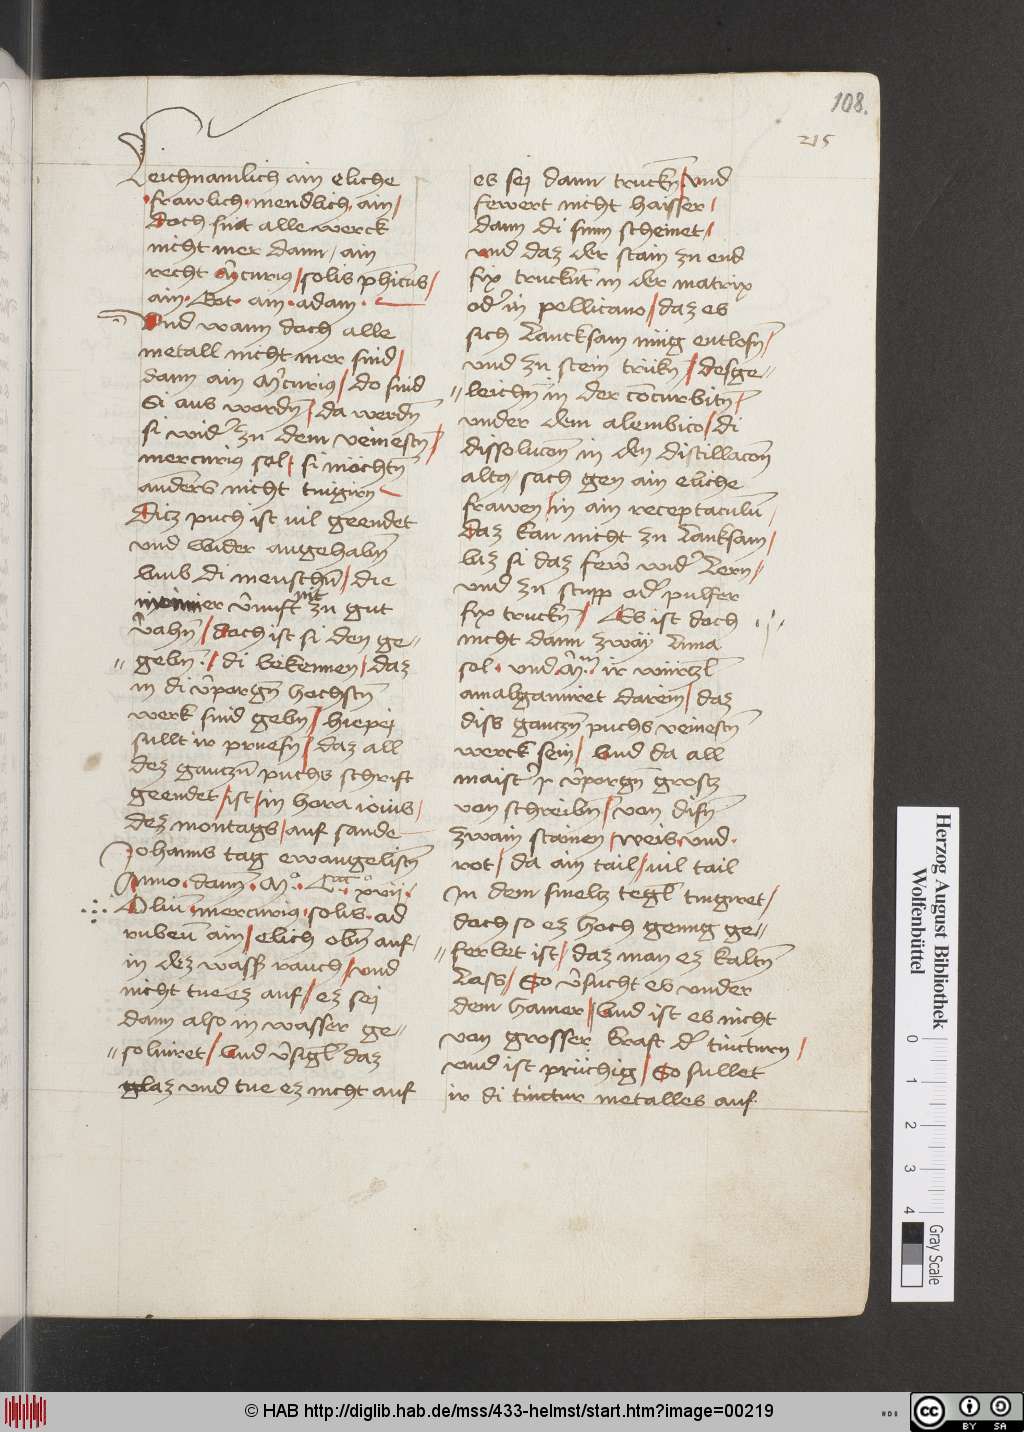 108.
215
Leichnamlich ain eliche
frawlich mendlich ain /
doch sint alle werck
nicht mer dann / ain
recht m̄curius / solis phīcus /
ain · Got · ain · adam ·
Und wann doch alle
metall nicht mer sind /
dann ain m̄curius / do sind
Si aus wordn̄ / da werdn̄
si wid' zu dem veinestn̄ /
mercurius sol / si möchtn̄
anders nicht tingirn
Ditz puch ist uil geendet
vnd wider angehabn̄
vmb di menschn̄ / die
ir v̄nuft mit zu gut
v̄ahn̄ / doch ist si den ge=
= gebn̄ · / di bekennen / daz
in di v̄porgn̄ hochstn̄
werk sind gebn̄ / hiepei
sullt ir pruefn̄ / daz all
dez gantzn̄ puchs schrift
geendet / ist / in hora iouis /
dez montags / auf sande
Johanns tag ewangelistn̄
Anno · dom̄ · Mº · CCCCº xvij ·
Oliū mercurius · solis · ad
rubeū ain / elich obn̄ auf /
in dez wass' rauch / vnd
nicht tue ez auf / ez sei
dann also in wasser ge=
= soluiret / vnd v̄sigl' daz
glaz vnd tue ez nicht auf
es sei dann truckn̄ / vnd
fewert nicht haisser /
dann di sunn scheinet /
vnd daz der stain zu end
fix truckn̄t in der matrix
od' in pellicano / daz es
sich lancksam müg entlosn̄ /
vnd zu stein trükn̄ / desge=
= leichn̄ in der cōncurbitn̄ /
vnder dem alembico / di
dissolucōn in den distillacōn
altz / sach gen ain eliche
frawen / in ain receptaculū /
daz kan nicht zu lanksam /
biz si daz fewr̄ vnd' lern /
vnd zu stupp od' pulfer
fix truckn̄ / Es ist doch
nicht dann zwäy luna
sol · vnd m̄ · ir würtzl'
amalgamiret darein / daz
diss gantzn̄ puchs veinestn̄
werck sein / vnd da all
maist' ir v̄porgn̄ grostz
von schreibn̄ / von disn̄
zwain stainen / weis · vnd ·
rot / da ain tail / uil tail
In dem smeltz tegl' tingiret /
doch so ez hoch genug ge=
= ferbet ist / daz man ez kaltn̄
lass / So v̄sucht es vnder
dem hamer / vnd ist es nicht
von grosser kraft d' tincturn /
vnd ist prüchig / So sullet
ir di tinctur metalles auf
Herzog August Bibliothek
Wolfenbüttel
0 1 2 3 4
Gray Scale
© HAB http://diglib.hab.de/mss/433-helmst/start.htm?image=00219
cc BY SA